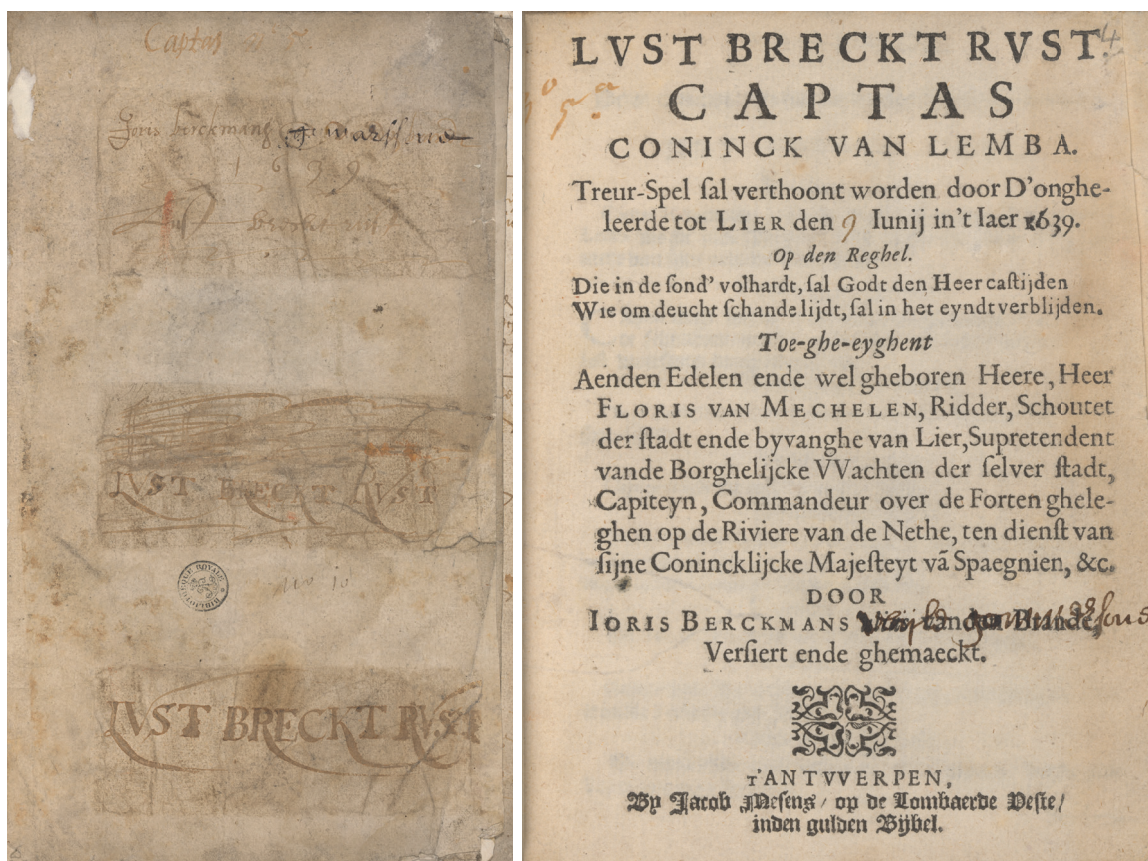 Captas
Joris berckmans
1639
Lust breckt rust
LVST BRECKT RVST
BIBLIOTHÈQUE ROYALE
no 10
LVST BRECKT RVST
4
LVST BRECKT RVST.
CAPTAS
CONINCK VAN LEMBA.
Treur-Spel sal verthoont worden door D'onghe-
leerde tot LIER den 9 Iunij in't Iaer 1639.
Op den Reghel.
Die in de sond' volhardt, sal Godt den Heer castijden
Wie om deucht schande lijdt, sal in het eyndt verblijden.
Toe-ghe-eyghent
Aenden Edelen ende wel gheboren Heere, Heer
FLORIS VAN MECHELEN, Ridder, Schoutet
der stadt ende byvanghe van Lier, Supretendent
vande Borghelijcke VVachten der selver stadt,
Capiteyn, Commandeur over de Forten ghele-
ghen op de Riviere van de Nethe, ten dienst van
sijne Conincklijcke Majesteyt vã Spaegnien, &c.
DOOR
IORIS BERCKMANS
Versiert ende ghemaeckt.
T'ANTVVERPEN,
By Jacob Mesens/ op de Lombaerde Veste/
inden gulden Bybel.